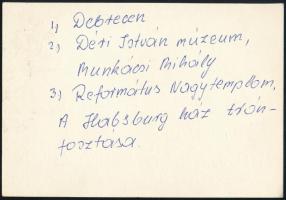 1) Debrecen
2) Déri István múzeum,
Munkácsi Mihály
3) Református Nagytemplom,
A Habsburg ház trón-
fosztása.